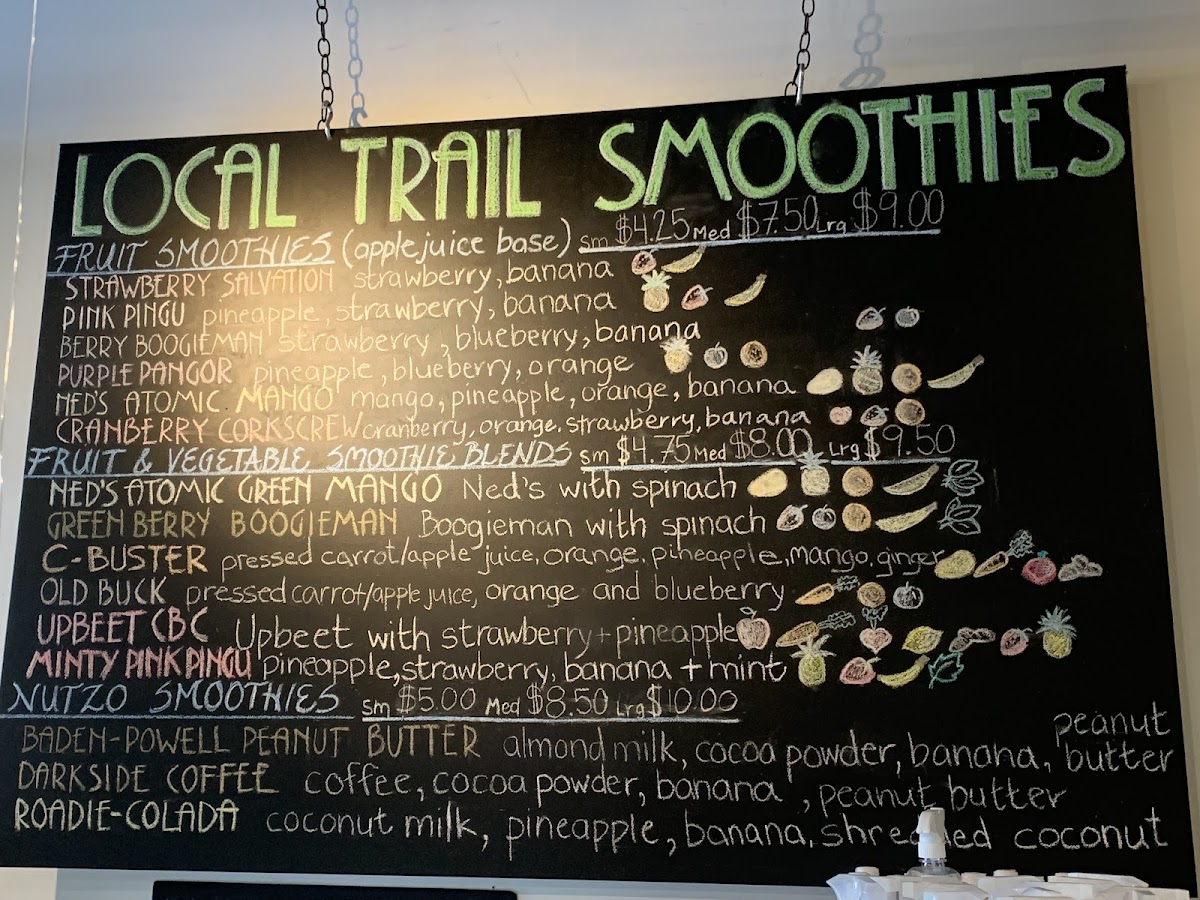 LOCAL TRAIL SMOOTHIES
FRUIT SMOOTHIES (apple juice base) Sm $4.25 Med $7.50 Lrg $9.00
STRAWBERRY SALVATION strawberry, banana
PINK PINGU pineapple, strawberry, banana
BERRY BOOGIEMAN strawberry, blueberry, banana
PURPLE PANGOR pineapple, blueberry, orange
NED'S ATOMIC MANGO mango, pineapple, orange, banana
CRANBERRY CORKSCREW cranberry, orange, strawberry, banana
FRUIT & VEGETABLE SMOOTHIE BLENDS Sm $4.75 Med $8.00 Lrg $9.50
NED'S ATOMIC GREEN MANGO Ned's with spinach
GREEN BERRY BOOGIEMAN Boogieman with spinach
C-BUSTER pressed carrot/apple juice, orange, pineapple, mango, ginger
OLD BUCK pressed carrot/apple juice, orange and blueberry
UPBEET CBC Upbeet with strawberry + pineapple
MINTY PINK PINGU pineapple, strawberry, banana + mint
NUTZO SMOOTHIES Sm $5.00 Med $8.50 Lrg $10.00
BADEN-POWELL PEANUT BUTTER almond milk, cocoa powder, banana, peanut butter
DARKSIDE COFFEE coffee, cocoa powder, banana, peanut butter
ROADIE-COLADA coconut milk, pineapple, banana, shredded coconut